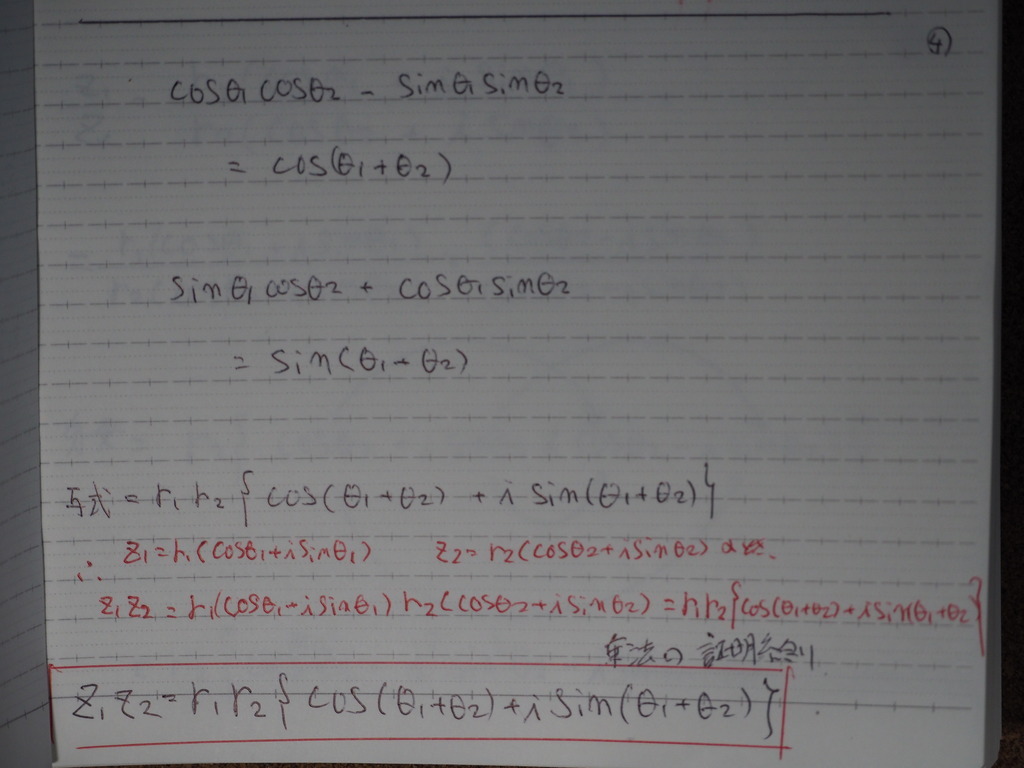 ④
cosθ₁cosθ₂ - sinθ₁sinθ₂
= cos(θ₁+θ₂)
sinθ₁cosθ₂ + cosθ₁sinθ₂
= sin(θ₁+θ₂)
与式 = r₁ r₂ { cos(θ₁+θ₂) + i sin(θ₁+θ₂) }
∴ z₁=r₁(cosθ₁+isinθ₁) z₂=r₂(cosθ₂+isinθ₂) の
z₁z₂ = r₁(cosθ₁-isinθ₁) r₂(cosθ₂+isinθ₂) = r₁r₂{cos(θ₁+θ₂)+isin(θ₁+θ₂}
乗法の 証明終り
z₁z₂=r₁r₂{cos(θ₁+θ₂)+i sin(θ₁+θ₂)}